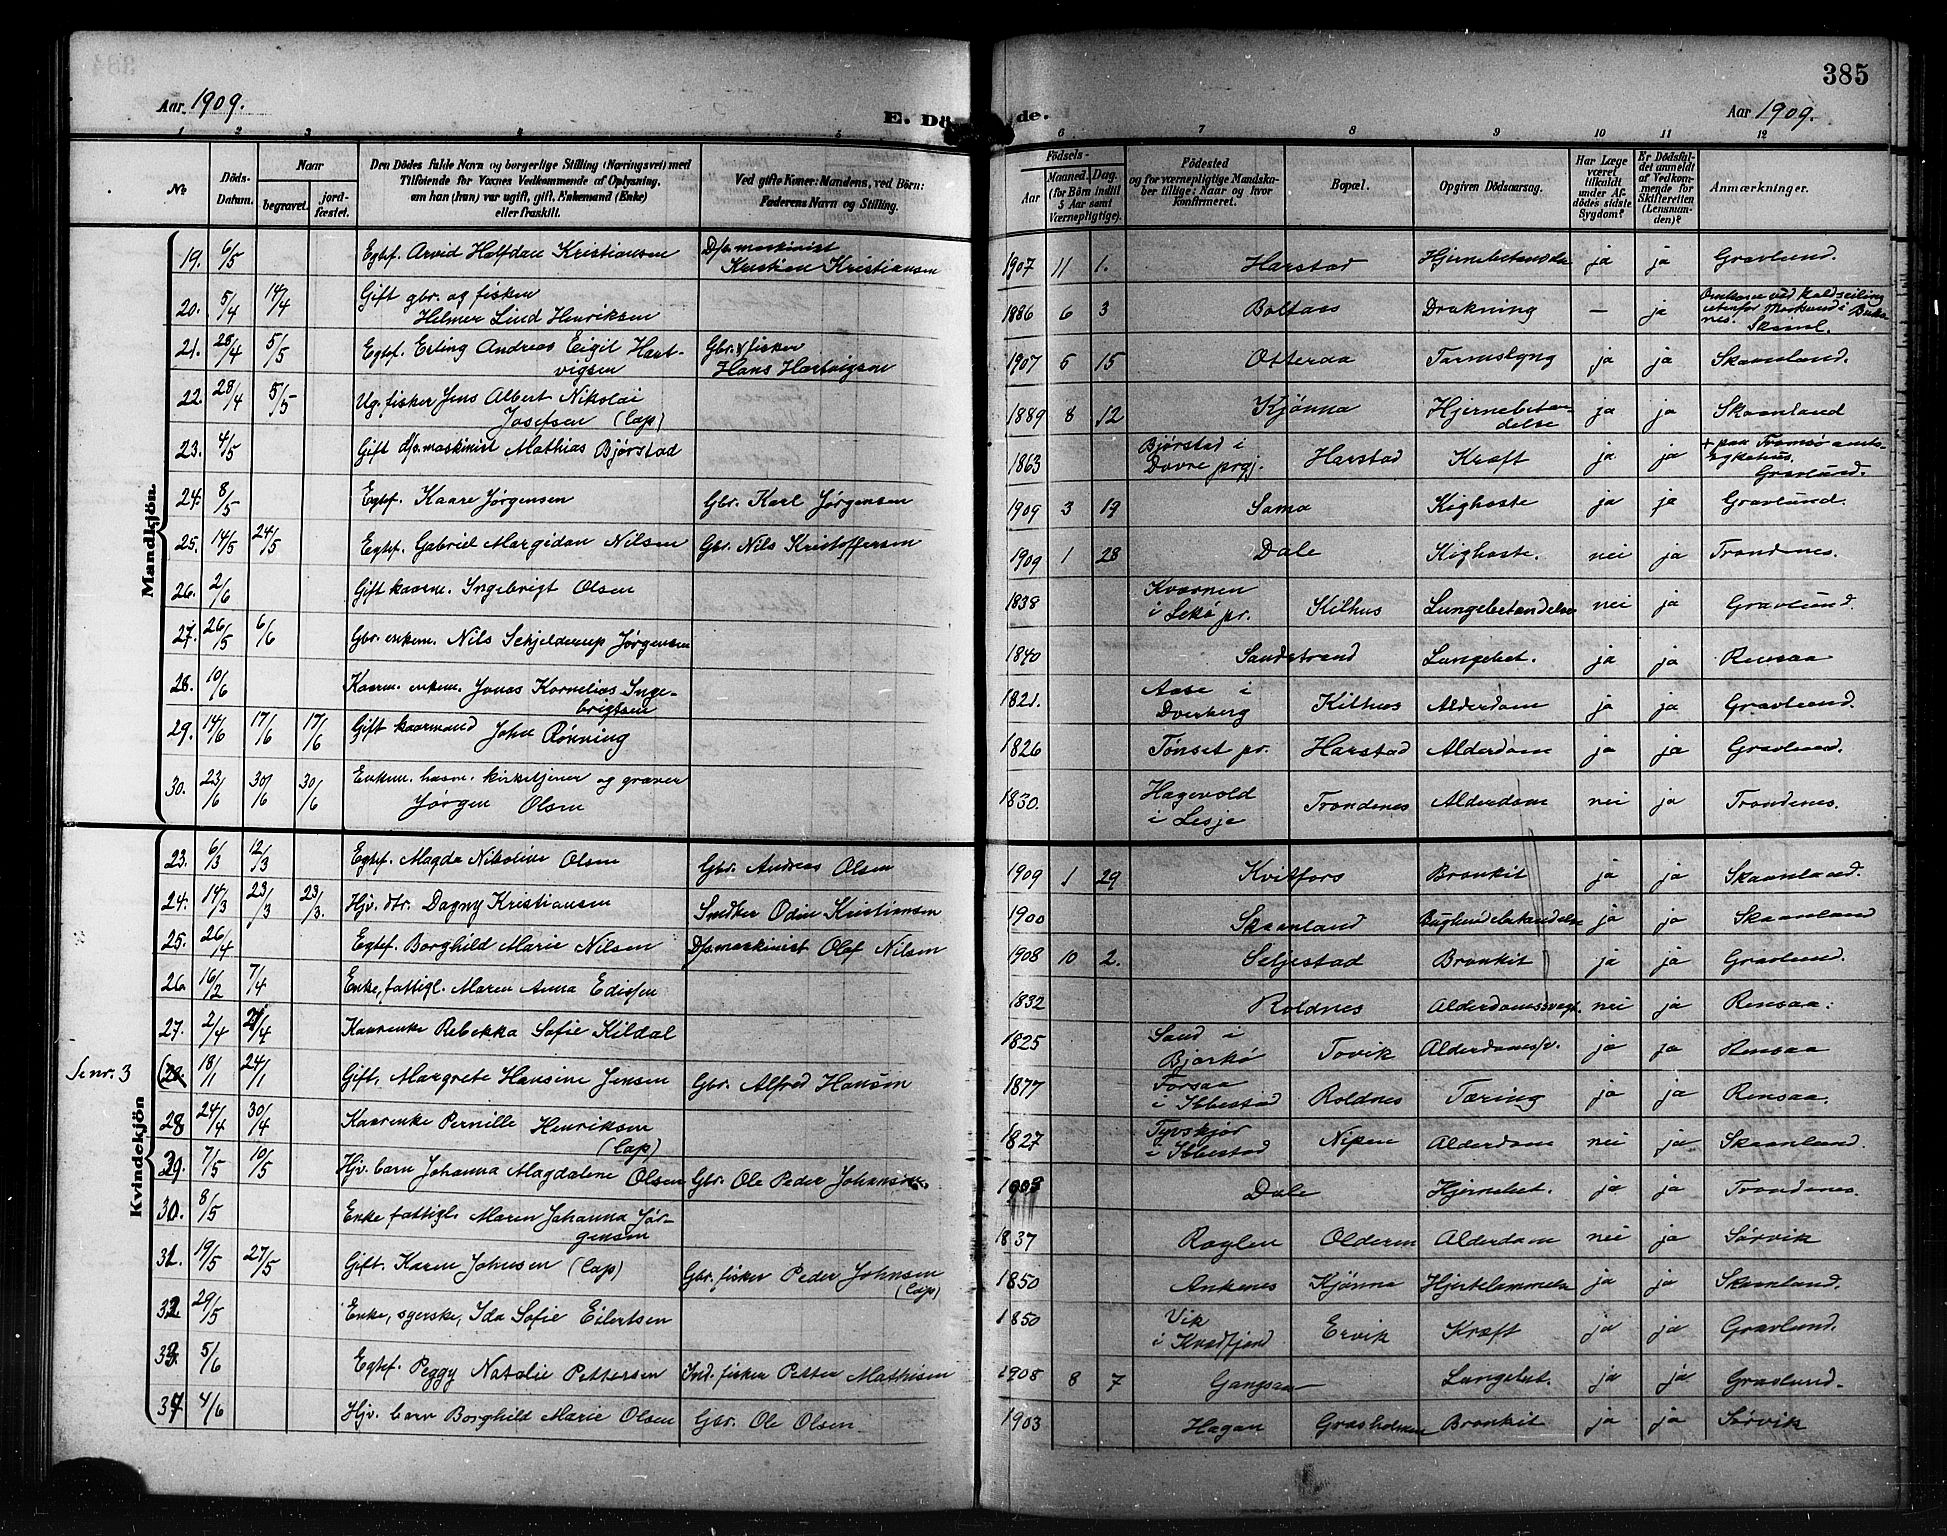 385
Aar 1909.
E. Dö
de.
Aar 1909.
1 2 3 4 5 6 7 8 9 10 11 12
No
Döds-Datum.
Naar
begravet.
jord-fæstet.
Den Dödes fulde Navn og borgerlige Stilling (Næringsvei) med
Tilföiende for Voxnes Vedkommende af Oplysning,
om han (hun) var ugift, gift, Enkemand (Enke)
eller fraskilt.
Ved gifte Koner: Mandens, ved Börn:
Faderens Navn og Stilling.
Födsels-
Aar
Maaned. Dag.
(for Börn indtil
5 Aar samt
Værnepligtige).
Födested
og for værnepligtige Mandska-
ber tillige: Naar og hvor
konfirmeret.
Bopæl.
Opgiven Dödsaarsag.
Har Læge
været
tilkaldt
under Af-
dödes sidste
Sygdom?
Er Dödsfal-
det anmeldt
af Vedkom-
mende for
Skifteretten
(Lensman-
den)?
Anmærkninger.
Mandkjön.
19. 6/5 Egtef. Arvid Halfdan Kristiansen D/s. maskinist Kristian Kristiansen 1907 11 1. Harstad Hjernebetændelse ja ja Gravlund.
20. 5/4 14/4 Gift gbr. og fisker Helmer Lind Henriksen 1886 6 3 Boltaas Drukning — ja Omkom ved Kuldseiling
21. 28/4 5/5 Egtef. Erling Andreas Eigil Hart-vigsen Gbr. & fisker Hans Hartvigsen 1907 6 15 Otteraa Tarmslyng ja ja Skaanland.
22. 28/4 5/5 Ug. fisker Jens Albert Nikolai Josefsen (Lap) 1889 8 12 Kjønna Hjernebetæn-delse ja ja Skaanland
23. 4/5 Gift d/s. maskinist Mathias Bjørstad 1863 Bjørstad i Dovre prgj. Harstad Kræft ja ja + paa Tromsø amts-sygehus. Gravlund.
24. 8/5 Egtef. Kaare Jørgensen Gbr. Karl Jørgensen 1909 3 19 Sama Kighoste ja ja Gravlund.
25. 14/5 24/5 Egtef. Gabriel Margidan Nilsen Gbr. Nils Kristoffersen 1909 1 28 Dale Kighoste. nei ja Trondenes.
26. 2/6 Gift kaarm. Ingebrigt Olsen 1838 Kværnen i Lekø pr. Kilhus Lungebetændelse nei ja Gravlund.
27. 26/5 6/6 Gbr. enkem. Nils Schjelderup Jørgensen 1840 Sandstrand Lungebet. ja ja Rensaa
28. 10/6 Kaarm. enkem. Jonas Kornelius Inge-brigtsen 1821. Aase i Dverberg Kilhus Alderdom ja ja Gravlund.
29. 14/6 17/6 17/6 Gift kaarmand John Rønning 1826 Tønset pr. Harstad Alderdom ja ja Gravlund.
30. 23/6 30/6 30/6 Enkem. husm. kirketjener og graver Jørgen Olsen 1830. Hagevold i Lesje Trondenes Alderdom nei ja Trondenes.
Kvindekjön
23. 6/3 12/3 Egtef. Magda Nikoline Olsen Gbr. Andreas Olsen 1909 1 29 Kvitfors Bronkit ja ja Skaanland.
24. 14/3 23/3 23/3. Hjv. dtr. Dagny Kristiansen Snedker Odin Kristiansen 1900 Skaanland Bughindebetændelse ja ja Skaanland
25. 26/4 Egtef. Borghild Marie Nilsen D/s. maskinist Olaf Nilsen 1908 10 2. Seljestad Bronkit ja ja Gravlund.
26. 16/2 7/4 Enke, fattigl. Maren Anna Edissen 1832 Roldnes Alderdomssvagh. nei ja Rensaa.
27. 2/4 21/4 Kaarenke Rebekka Sofie Kildal 1825 Sand i Bjarkø Tovik Alderdoms/v. ja ja Rensaa
Se nr. 3 (28.) 18/1 24/1 Gift, Margrete Hansine Jensen Gbr. Alfred Hansen 1877 Forsaa i Ibbestad Roldnes Tæring ja ja Rensaa.
28 24/4 30/4 Kaarenke Pernille Henriksen (Lap) 1827 Tyvskjør i Ibbestad Nipen Alderdom nei ja Skaanland.
29. 7/5 10/5 Hjv. barn Johanna Magdalene Olsen Gbr. Ole Peder Johansen. 1903 Dale Hjernebet. ja ja Trondenes.
30. 8/5 Enke fattigl. Maren Johanna Jør-gensen 1837 Roglen Olderen Alderdom nei ja Sørvik
31. 19/5 27/5 Gift. Karen Johnsen (Lap) Gbr. fisker Peder Johnsen (Lap) 1850 Ankenes Kjønna Hjertelammelse ja ja Skaanland.
32 29/5 Enke, syerske, Ida Sofie Eilertsen 1850 Vik i Kvæfjord Ervik Kræft ja ja Gravlund.
33. 5/6 Egtef. Peggy Natalie Pettersen Ind. fisker Petter Mathisen 1908 8 7 Gangsaas Lungebet. ja ja Gravlund.
34 4/6 Hjv. barn Borghild Marie Olsen Gbr. Ole Olsen 1903 Hagan Grasholmen Bronkit ja ja Sørvik